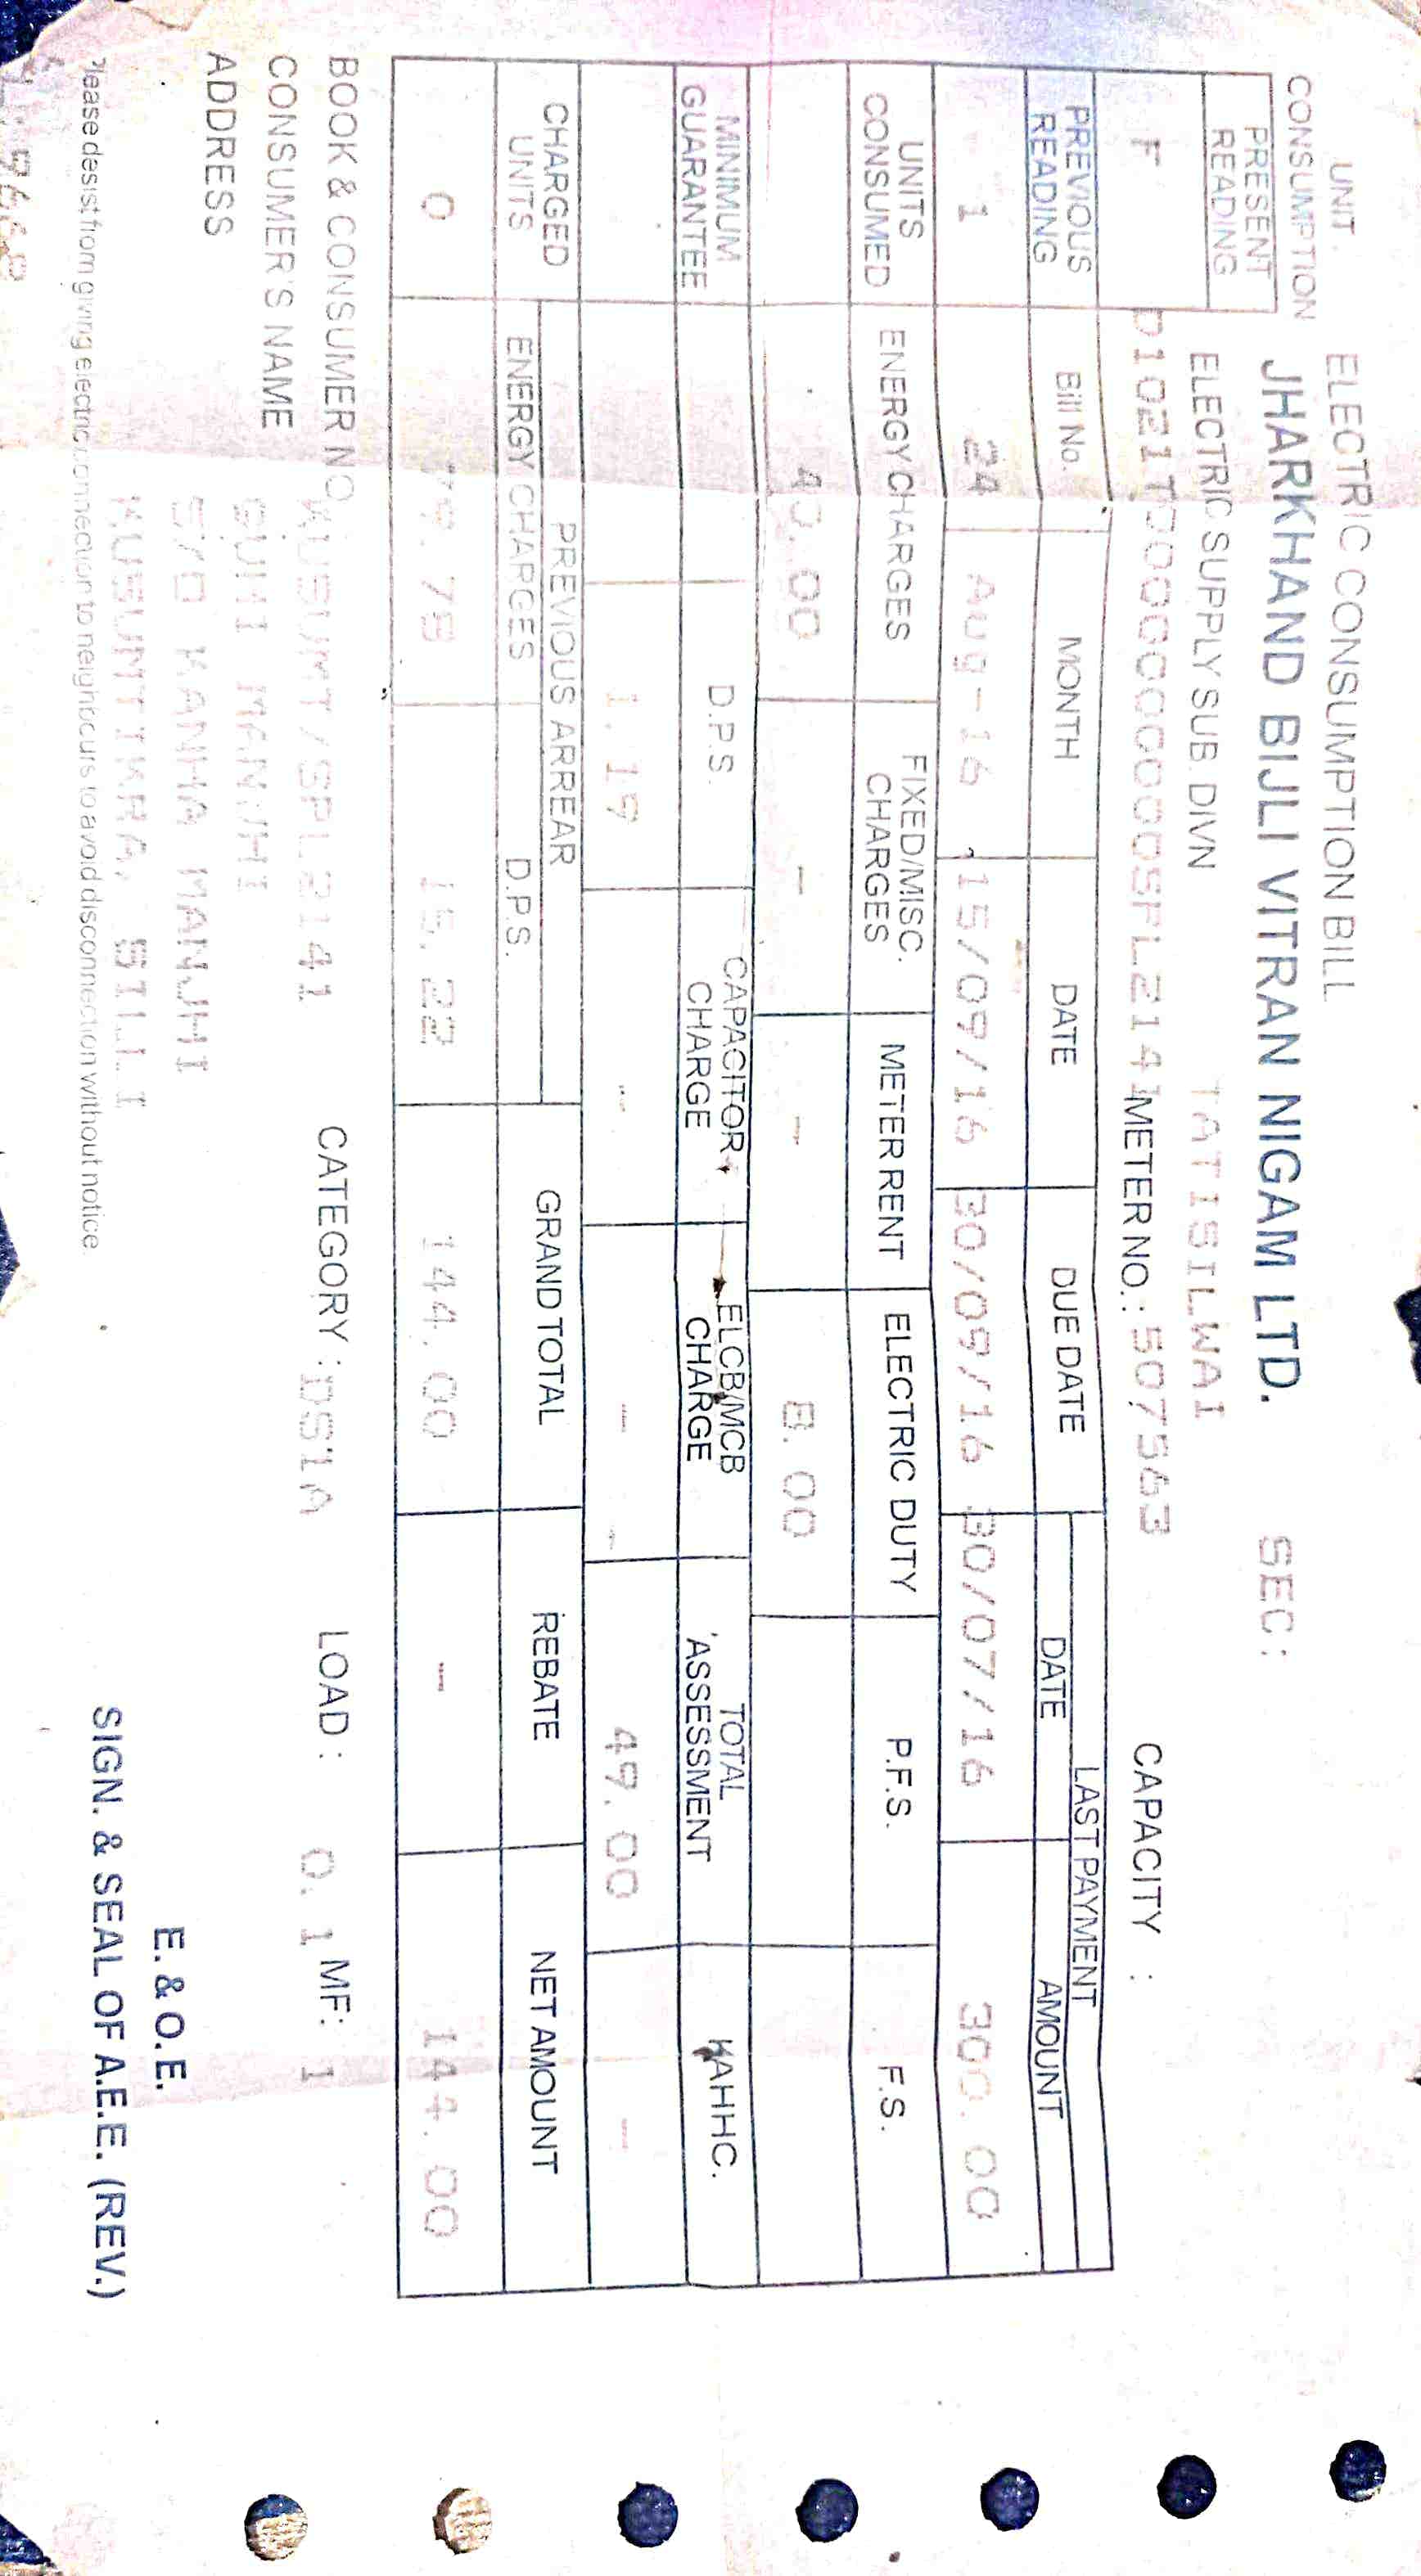 ELECTRIC CONSUMPTION BILL
UNIT CONSUMPTION
JHARKHAND BIJLI VITRAN NIGAM LTD. SEC:
PRESENT READING
ELECTRIC SUPPLY SUB. DIVN TATISILWAI
F METER NO.: 507563 CAPACITY :
PREVIOUS READING Bill No. MONTH DATE DUE DATE LAST PAYMENT
DATE AMOUNT
1 24 Aug-16 15/09/16 30/09/16 30/07/16 300.00
UNITS CONSUMED ENERGY CHARGES FIXED/MISC. CHARGES METER RENT ELECTRIC DUTY P.F.S. F.S.
43.00 - - 8.00
MINIMUM GUARANTEE D.P.S. CAPACITOR CHARGE ELCB/MCB CHARGE TOTAL ASSESSMENT KAHHC.
1.19 - - 49.00 -
CHARGED UNITS PREVIOUS ARREAR GRAND TOTAL REBATE NET AMOUNT
ENERGY CHARGES D.P.S.
0 79.78 15.22 144.00 - 144.00
BOOK & CONSUMER NO. KUSUMT/SPL2141 CATEGORY : DS1A LOAD : 0.1 MF: 1
CONSUMER'S NAME MANJHI
ADDRESS S/O KANHA MANJHI
SILLI
E. & O.E.
Please desist from giving electric connection to neighbours to avoid disconnection without notice.
SIGN. & SEAL OF A.E.E. (REV.)